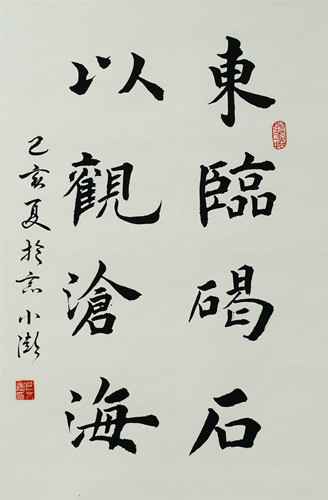 東臨碣石
以觀滄海
己亥夏於京小澎